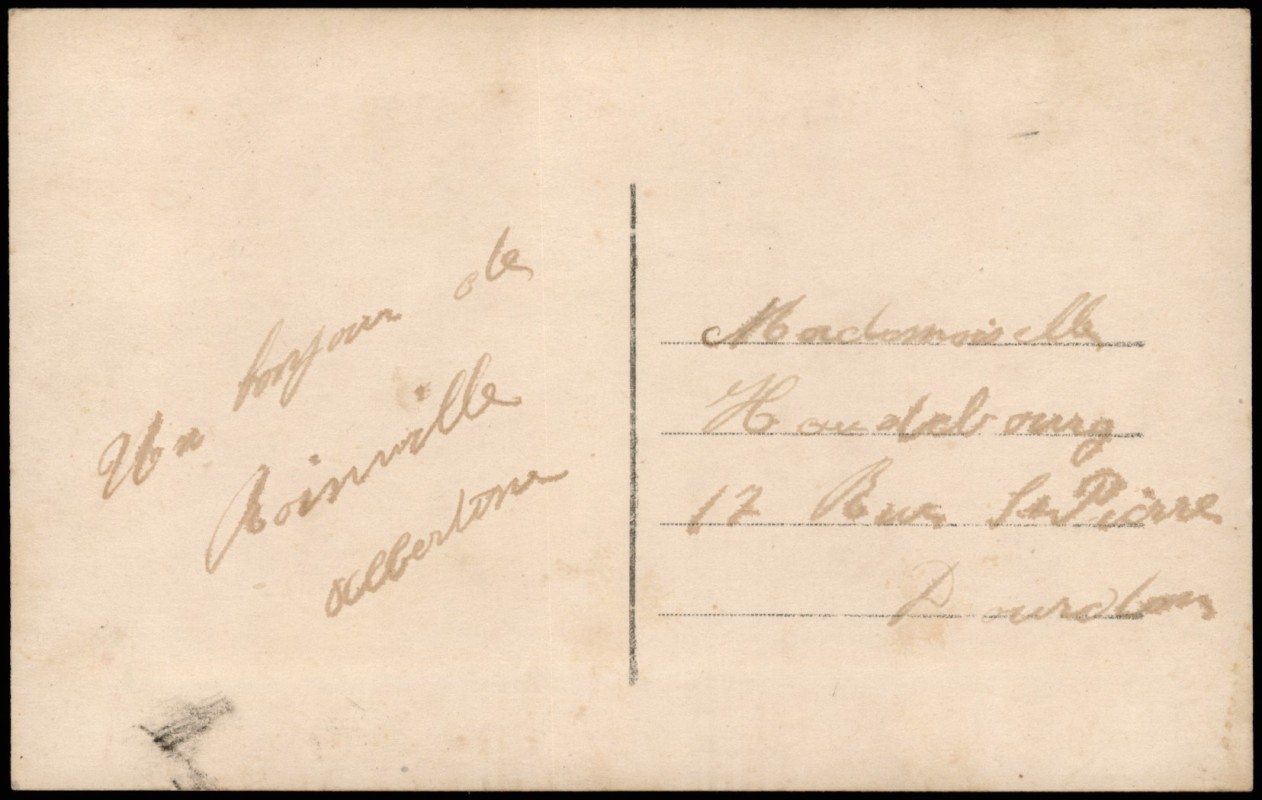 Un bonjour de
Roinville
Albertine
Mademoiselle
Houdebourg
17 Rue St Pierre
Dourdan